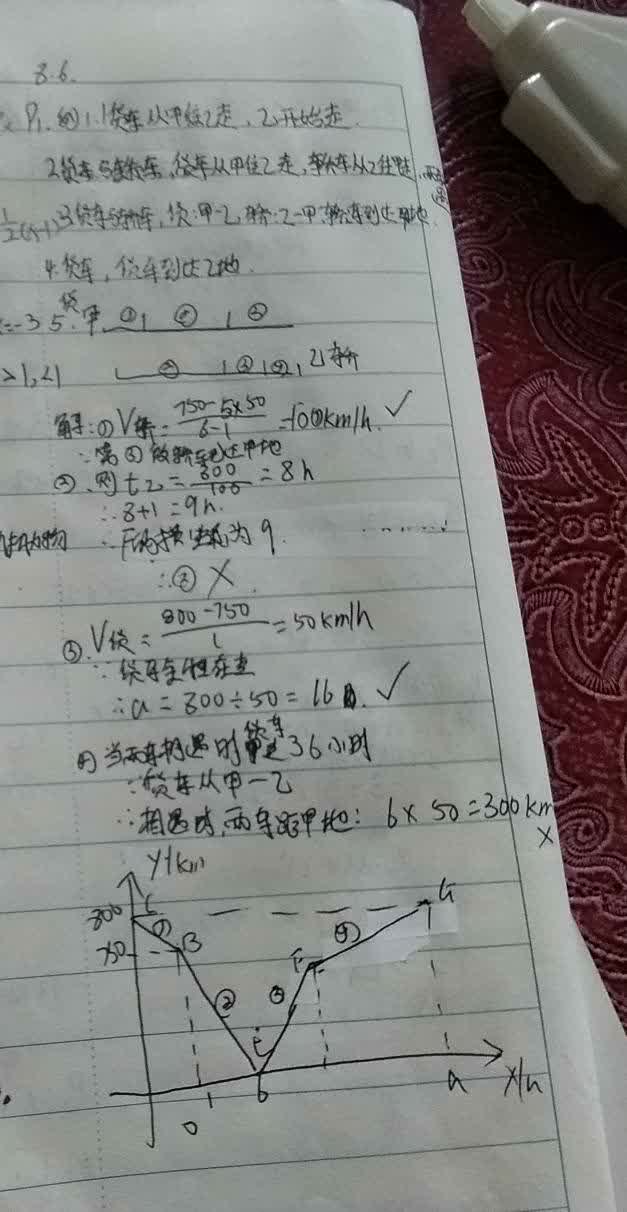 8.6.
P1. 的1.1货车从甲往乙走,乙开始走.
2货车与轿车,货车从甲往乙走,轿车从乙往甲走,
3货车与轿车,货:甲-乙,轿:乙-甲,轿车到达甲地.
4.货车,货车到达乙地.
5.甲 ① ② ③
乙轿
解:① V轿=(750-5×50)/(6-1)=100km/h. ✓
∵第③段轿车到达甲地
② 则t乙=800/100=8h
∴8+1=9h.
∴F的横坐标为9.
∴② ×
③. V货=(800-750)/1=50km/h
∵货车全程在走
∴a=800÷50=16 ✓
④ 当两车相遇时货车走了6小时
∵货车从甲-乙
∴相遇时,两车距甲地:6×50=300km
×
Y/km
800 C ① G
750 B F ④
② ③
E
0 1 6 a X/h